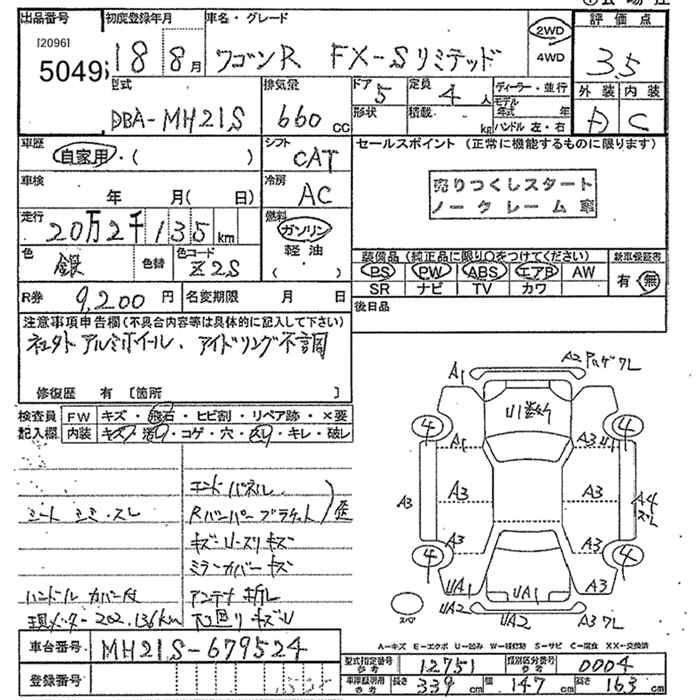 出品番号 初度登録年月 車名・グレード 評価点
[2096]
5049
18 8月 ワゴンR FX-Sリミテッド 2WD 4WD 3.5
型式 排気量 ドア 定員 ディーラー・並行 外装 内装
DBA-MH21S 660 CC 5 4人 モデル年式 年 D C
形状 積載 kg ハンドル 左・右
車歴 シフト セールスポイント (正常に機能するものに限ります)
自家用・( ) CAT
車検 年 月(日) 冷房 AC
売りつくしスタート
ノークレーム車
走行 20万2千135km 燃料 ガソリン
軽油
( )
色 銀 色替 色コード Z2S
装備品(純正品に限り○をつけてください) 新車保証書
PS PW ABS エアB AW 有・無
SR ナビ TV カワ
R券 9,200円 名変期限 月 日 後日品
注意事項申告欄(不具合内容等は具体的に記入して下さい)
アルミホイール、アイドリング不調
修復歴 有 [箇所 ]
検査員 FW キズ・飛石・ヒビ割・リペア跡・×要
記入欄 内装 キズ・汚れ・コゲ・穴・スレ・キレ・破レ
エンドパネル
シート シミ・スレ Rバンパーブラケット 歪
キズ・U・スリキズ
ミラーカバーキズ
ハンドルカバー付 アンテナ折レ
現メーター202,136km 下回りキズU
車台番号 MH21S-679524
登録番号
A1 A2
U1
4 4
A1 A3 U1
A3 A3 A3 A4 スレ
A3 A3
4 4
UA1 UA1 A3
UA2 UA2 A3 ワレ
スペア
A-キズ E-エクボ U-凹み W-補修跡 S-サビ C-腐食 XX-交換済
型式指定番号 参考 12751 類別区分番号 参考 0004
車庫証明用 参考 長さ 339cm 幅 147cm 高さ 163cm